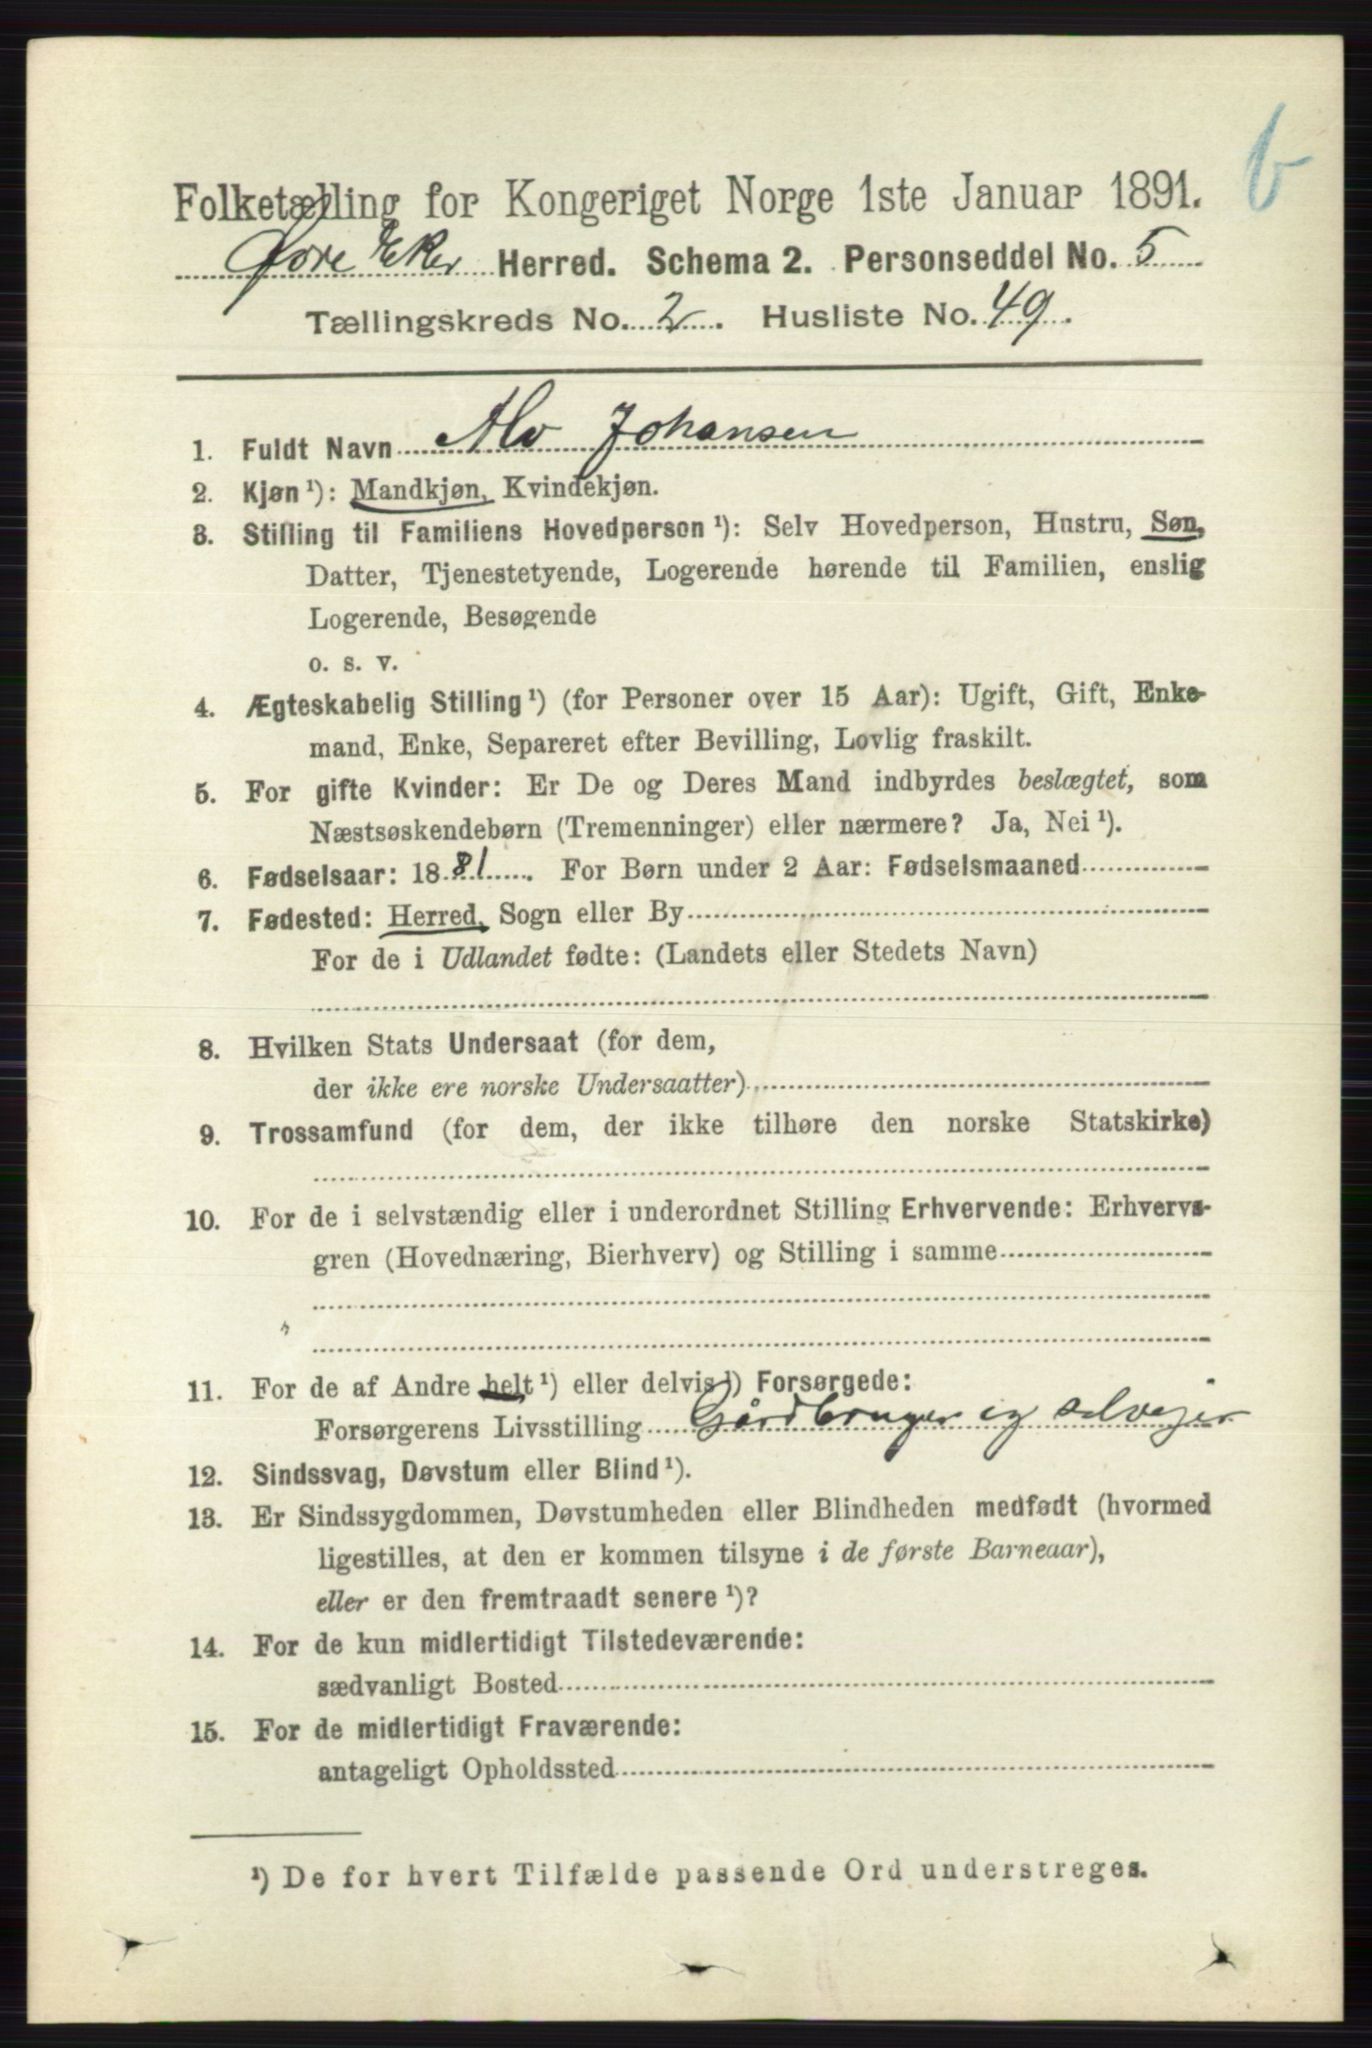 b
Folketælling for Kongeriget Norge 1ste Januar 1891.
Øvre Eker Herred. Schema 2. Personseddel No. 5
Tællingskreds No. 2. Husliste No. 49.
1. Fuldt Navn Alv Johansen
2. Kjøn ¹): Mandkjøn, Kvindekjøn.
3. Stilling til Familiens Hovedperson ¹): Selv Hovedperson, Hustru, Søn,
Datter, Tjenestetyende, Logerende hørende til Familien, enslig
Logerende, Besøgende
o. s. v.
4. Ægteskabelig Stilling ¹) (for Personer over 15 Aar): Ugift, Gift, Enke-
mand, Enke, Separeret efter Bevilling, Lovlig fraskilt.
5. For gifte Kvinder: Er De og Deres Mand indbyrdes beslægtet, som
Næstsøskendebørn (Tremenninger) eller nærmere? Ja, Nei ¹).
6. Fødselsaar: 1881. For Børn under 2 Aar: Fødselsmaaned
7. Fødested: Herred, Sogn eller By
For de i Udlandet fødte: (Landets eller Stedets Navn)
8. Hvilken Stats Undersaat (for dem,
der ikke ere norske Undersaatter)
9. Trossamfund (for dem, der ikke tilhøre den norske Statskirke)
10. For de i selvstændig eller i underordnet Stilling Erhvervende: Erhvervs-
gren (Hovednæring, Bierhverv) og Stilling i samme
11. For de af Andre helt ¹) eller delvis ¹) Forsørgede:
Forsørgerens Livsstilling Gårdbruger og selvejer
12. Sindssvag, Døvstum eller Blind ¹).
13. Er Sindssygdommen, Døvstumheden eller Blindheden medfødt (hvormed
ligestilles, at den er kommen tilsyne i de første Barneaar),
eller er den fremtraadt senere ¹)?
14. For de kun midlertidigt Tilstedeværende:
sædvanligt Bosted
15. For de midlertidigt Fraværende:
antageligt Opholdssted
¹) De for hvert Tilfælde passende Ord understreges.